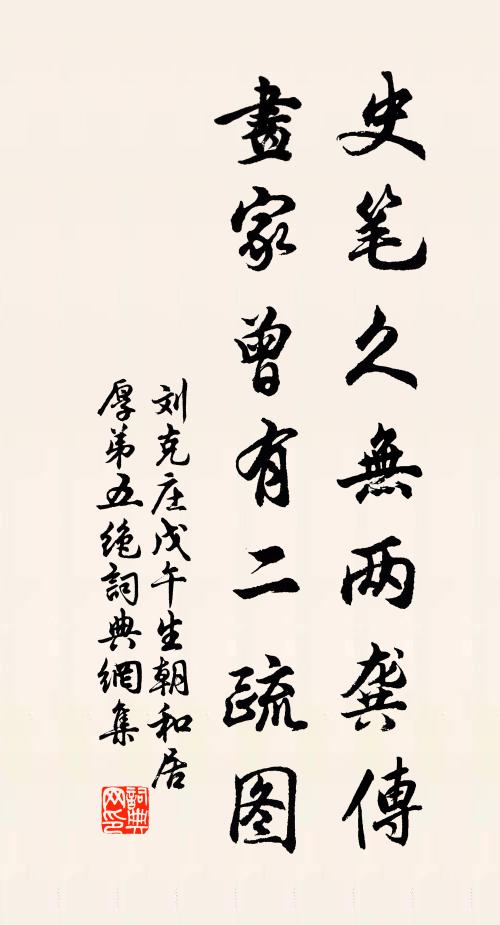 史笔久無两龔傳
畫家曾有二疏图
刘克庄戊午生朝和居
厚弟五绝詞典網集
詞典网印